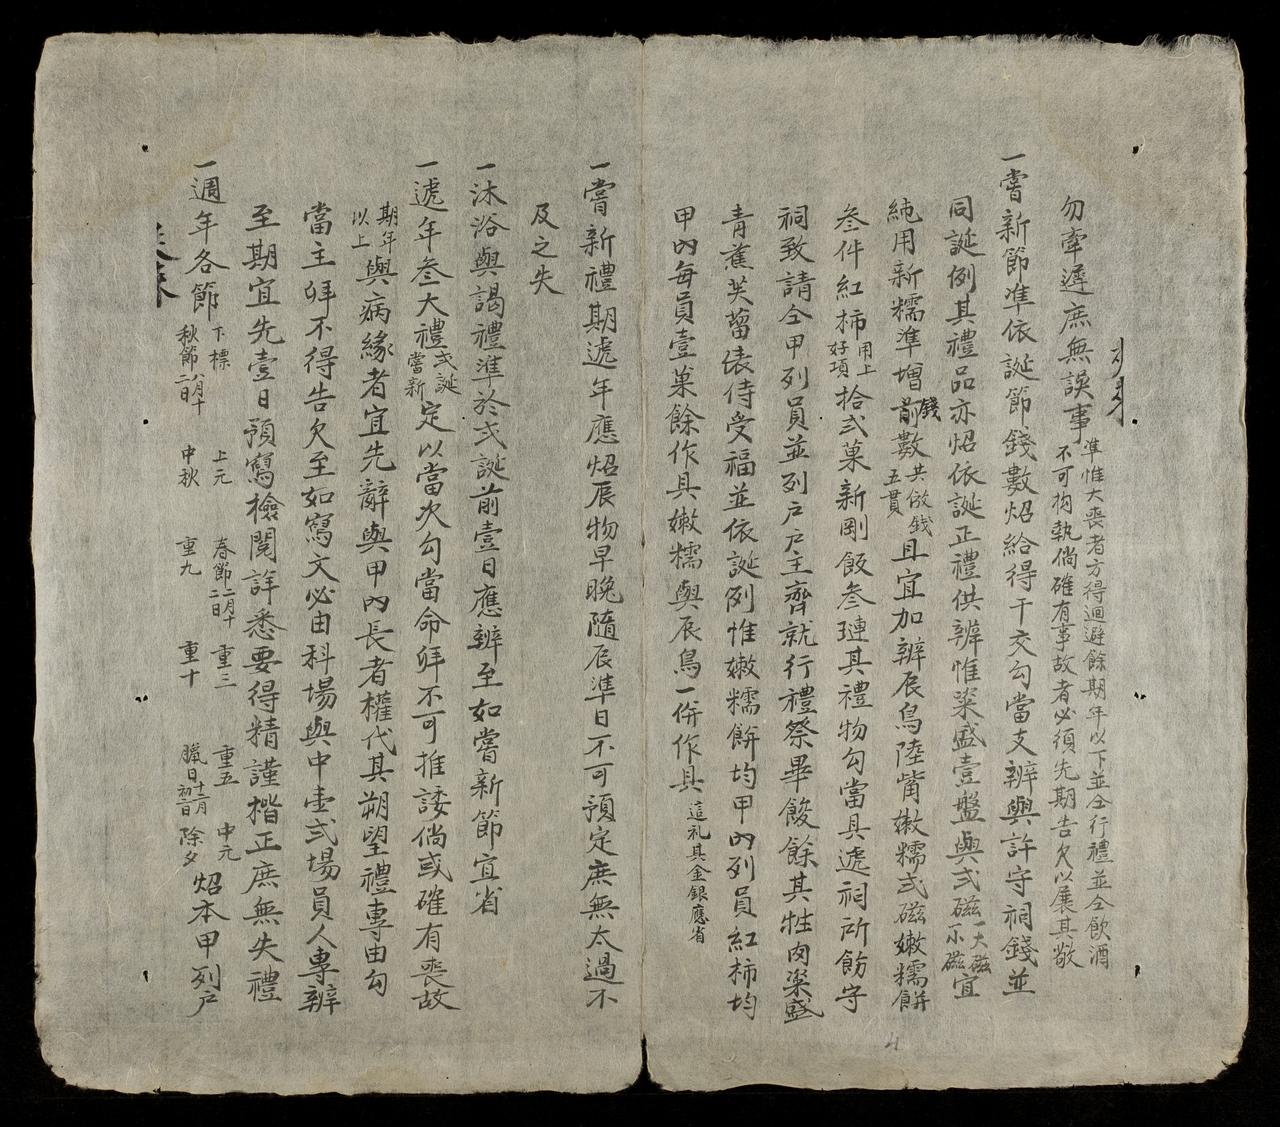 勿牽遲庶無誤事準惟大喪者方得迴避餘期年以下並仝行禮並仝飲酒
不可拘執倘確有事故者必須先期告欠以展其敬
一嘗新節準依誕節錢數炤給得干交勾當支辨與許守祠錢並
同誕例其禮品亦炤依誕正禮供辨惟粢盛壹盤與弍磁一大磁一小磁宜
純用新糯準增錢前數共做錢五貫且宜加辨辰鳥陸觜嫩糯弍磁嫩糯餅
叁件紅柿用上好項拾弍菓新剛飯叁璉其禮物勾當具遞祠所飭守
祠致請仝甲列員並列戶戶主齊就行禮祭畢餕餘其牲肉粢盛
青蕉芙蒥俵侍受福並依誕例惟嫩糯餅均甲內列員紅柿均
甲內每員壹菓餘作具嫩糯與辰鳥一併作具這礼其金銀應省
一嘗新禮期遞年應炤辰物早晚隨辰準日不可預定庶無太過不
及之失
一沐浴與謁禮準於弍誕前壹日應辨至如嘗新節宜省
一遞年叁大禮弍誕嘗新定以當次勾當命拜不可推諉倘或確有喪故
期年以上與病緣者宜先辭與甲內長者權代其朔望禮專由勾
當主拜不得告欠至如寫文必由科場與中壹弍場員人專辨
至期宜先壹日預寫檢閱詳悉要得精謹楷正庶無失禮
一週年各節下標 上元 春節二月十二日 重三 重五 中元
秋節八月十二日 中秋 重九 重十 臘日十二月初二日 除夕炤本甲列戶